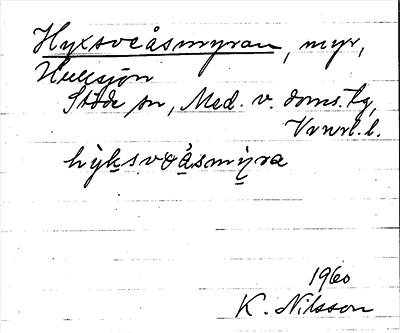 Hyxsveåsmyran, myr,
Hullsjön
Stöde sn, Med. v. doms. tg,
Vrnrl. l.
hỳksvoåsmỳra
1960
K. Nilsson